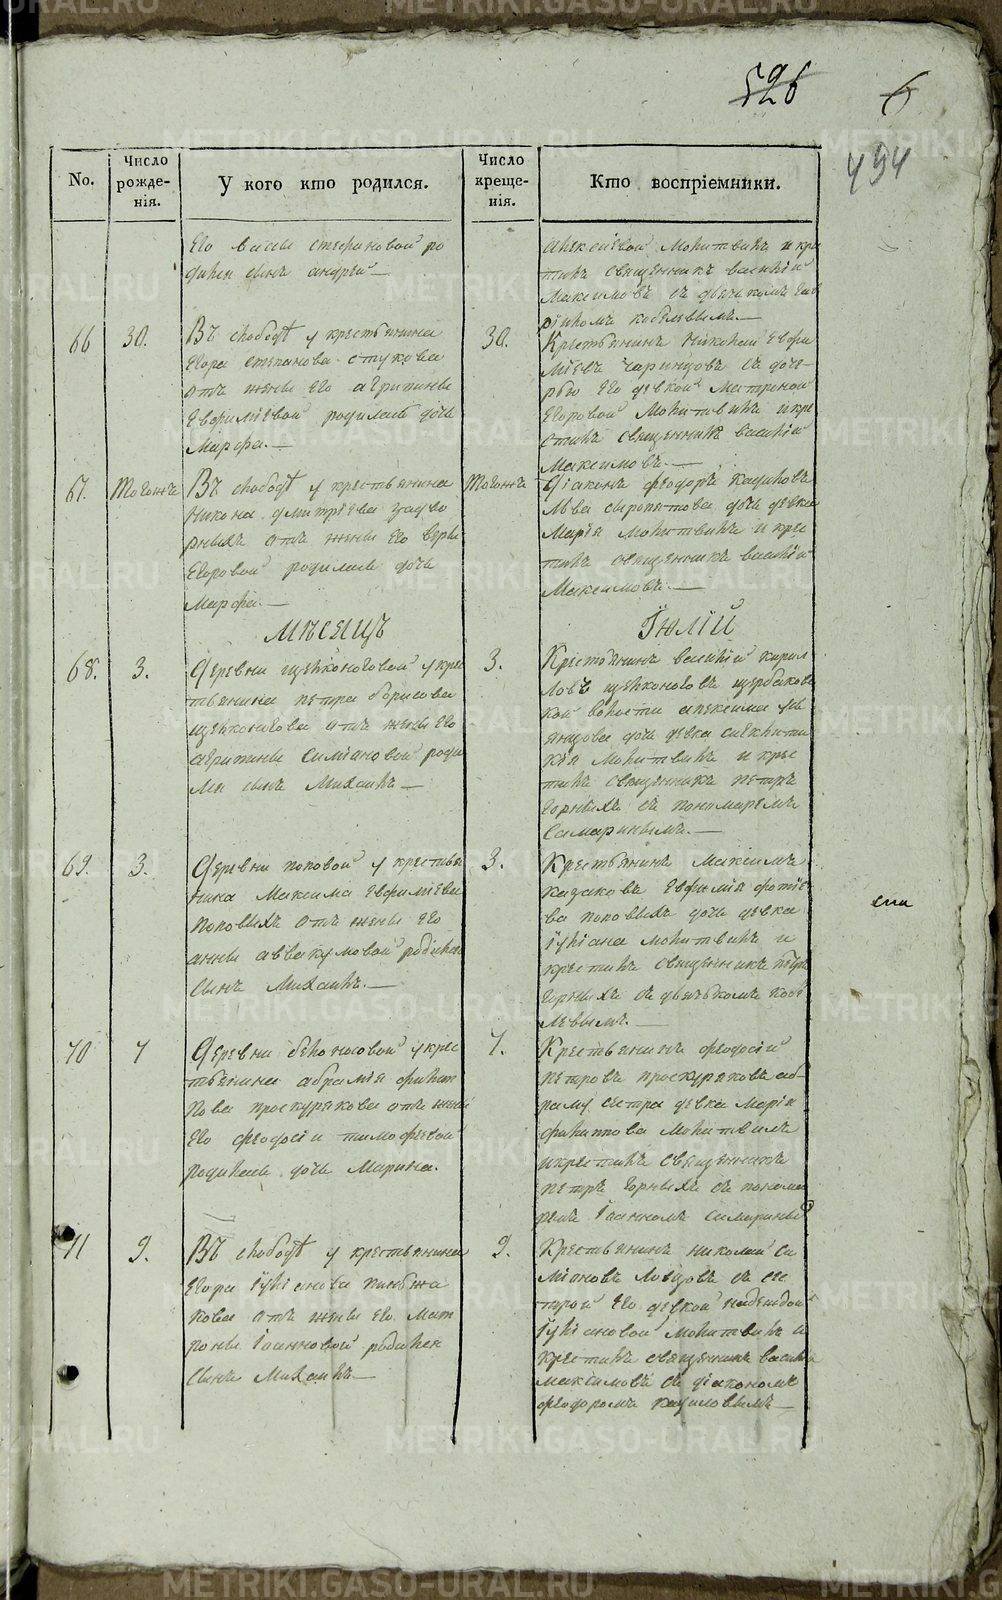 526
6
494
No.
Число рожде-нія.
У кого кто родился.
Число креще-нія.
Кто воспріемники.
Его василисы стефановой ро
дился сынъ андрей —
алексеевой молитвилъ и кре
стилъ священникъ василій
Максимовъ съ дьячкомъ
66
30.
Въ слободѣ у крестьянина
Егора степанова стукова
отъ жены его агрипины
Евфиміевой родилась дочь
Марфа. —
30.
Крестьянинъ Николай Евфи
міевъ съ доче-
рью его девкой Матреной
Егоровой Молитвилъ и кре
стилъ священникъ василій
Максимовъ. —
67.
Тогожъ
Въ слободѣ у крестьянина
Никона дмитріева задво
рныхъ отъ жены его веры
Егоровой родилась дочь
Марфа. —
Тогожъ
Діаконъ феодоръ кациловъ
Льва сыропятова дочь девка
Марія молитвилъ и кре
стилъ священникъ василій
Максимовъ. —
Мѣсяцъ
Іюлій
68.
3.
Деревни щелконоговой у крес
тьянина петра борисова
щелконогова отъ жены его
агрипины симіоновой роди
лся сынъ Михаилъ —
3.
Крестьянинъ василій кирил
ловъ щелконоговъ щербаковс
кой волости алексея
дочь девка
молитвилъ и крес
тилъ священникъ петръ
Горныхъ съ пономаремъ
Самаринымъ. —
69.
3.
Деревни поповой у крестья
нина Максима Евфиміева
поповыхъ отъ жены его
анны аввакумовой родился
сынъ Михаилъ. —
3.
Крестьянинъ Максимъ
казаковъ Евфимія фотіе
ва поповыхъ дочь девка
Іуліана молитвилъ и
крестилъ священникъ петръ
Горныхъ съ дьячькомъ
70
7
Деревни белоносовой у крес
тьянина абрамія филип
пова проскурякова отъ жены
его феодосіи тимофеевой
родилась дочь Марина.
7.
Крестьянинъ феодосій
петровъ проскуряковъ аб-
раму сестра девка Марія
филиппова молитвилъ
и крестилъ священникъ
петръ Горныхъ съ понома
ремъ Іоанномъ самаринымъ
71
9.
Въ слободѣ у крестьянина
Егора Іуліанова
отъ жены его Мат
роны Іоанновой родился
сынъ Михаилъ. —
9.
Крестьянинъ николай си
міоновъ ловцовъ съ сес
трой его девкой надеждой
Іуліановой молитвилъ и
крестилъ священникъ василій
максимовъ съ діакономъ
феодоромъ кациловымъ —
METRIKI.GASO-URAL.RU